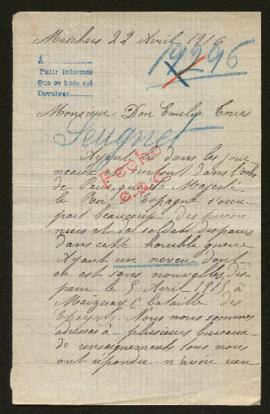 Meschers 22 Avril 1916
19296
A
Pedir informes
Que se hace así
Devolver
Monsieur Don Emilio Torres
Seugnet
Ayant lu dans les jour
neaux et surtout dans l'
de Paris que sa Majesté
le Roi d'Espagne s'occu
pait beaucoup des prison
niers et des soldats disparus
dans cette horrible guerre
Ayant un neveu dont
on est sans nouvelles de
puis le 5 Avril 1915 à
Maizeray bataille des
Eparges Nous nous sommes
adressés à plusieurs bureaux
de renseignements tous nous
ont répondu n'avoir rien